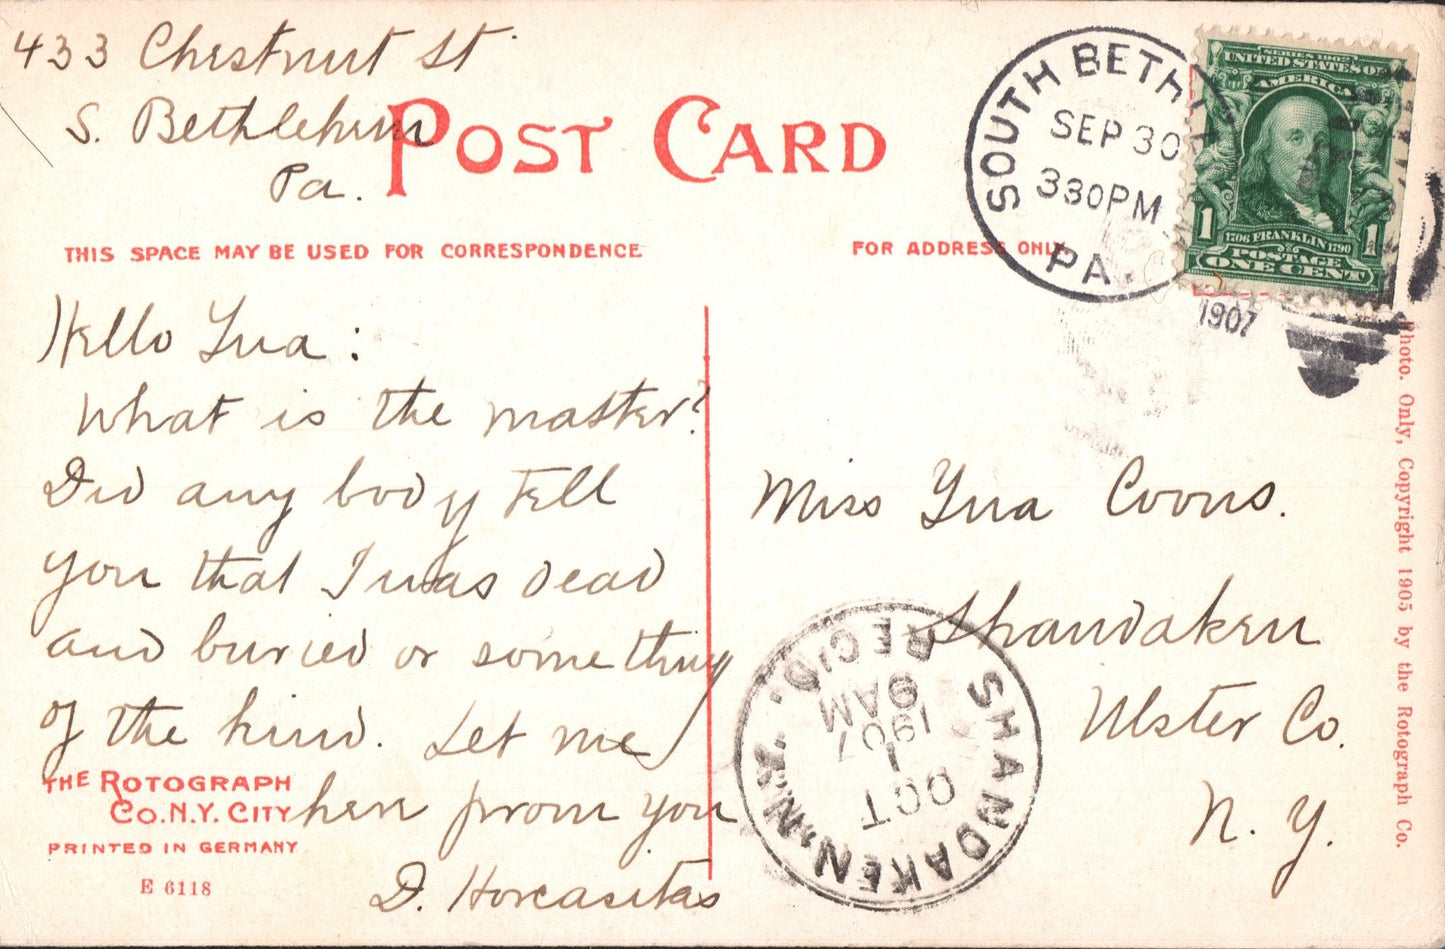 433 Chestnut St.
S. Bethlehem
Pa.
POST CARD
THIS SPACE MAY BE USED FOR CORRESPONDENCE
FOR ADDRESS ONLY
SOUTH BETH
SEP 30
330PM
PA.
1907
SERIES 1902
UNITED STATES OF
AMERICA
1 1
1706 FRANKLIN 1790
POSTAGE
ONE CENT
Hello Yua :
What is the matter?
Did any body tell
you that I was dead
and buried or something
of the kind. Let me
hear from you
D. Horcasitas
Miss Yua Coons.
Shandaken
Ulster Co.
N. Y.
SHANDAKEN, N.Y.
REC'D.
OCT
1
1907
9 AM
THE ROTOGRAPH
CO. N.Y. CITY
PRINTED IN GERMANY
E 6118
Photo. Only, Copyright 1905 by the Rotograph Co.